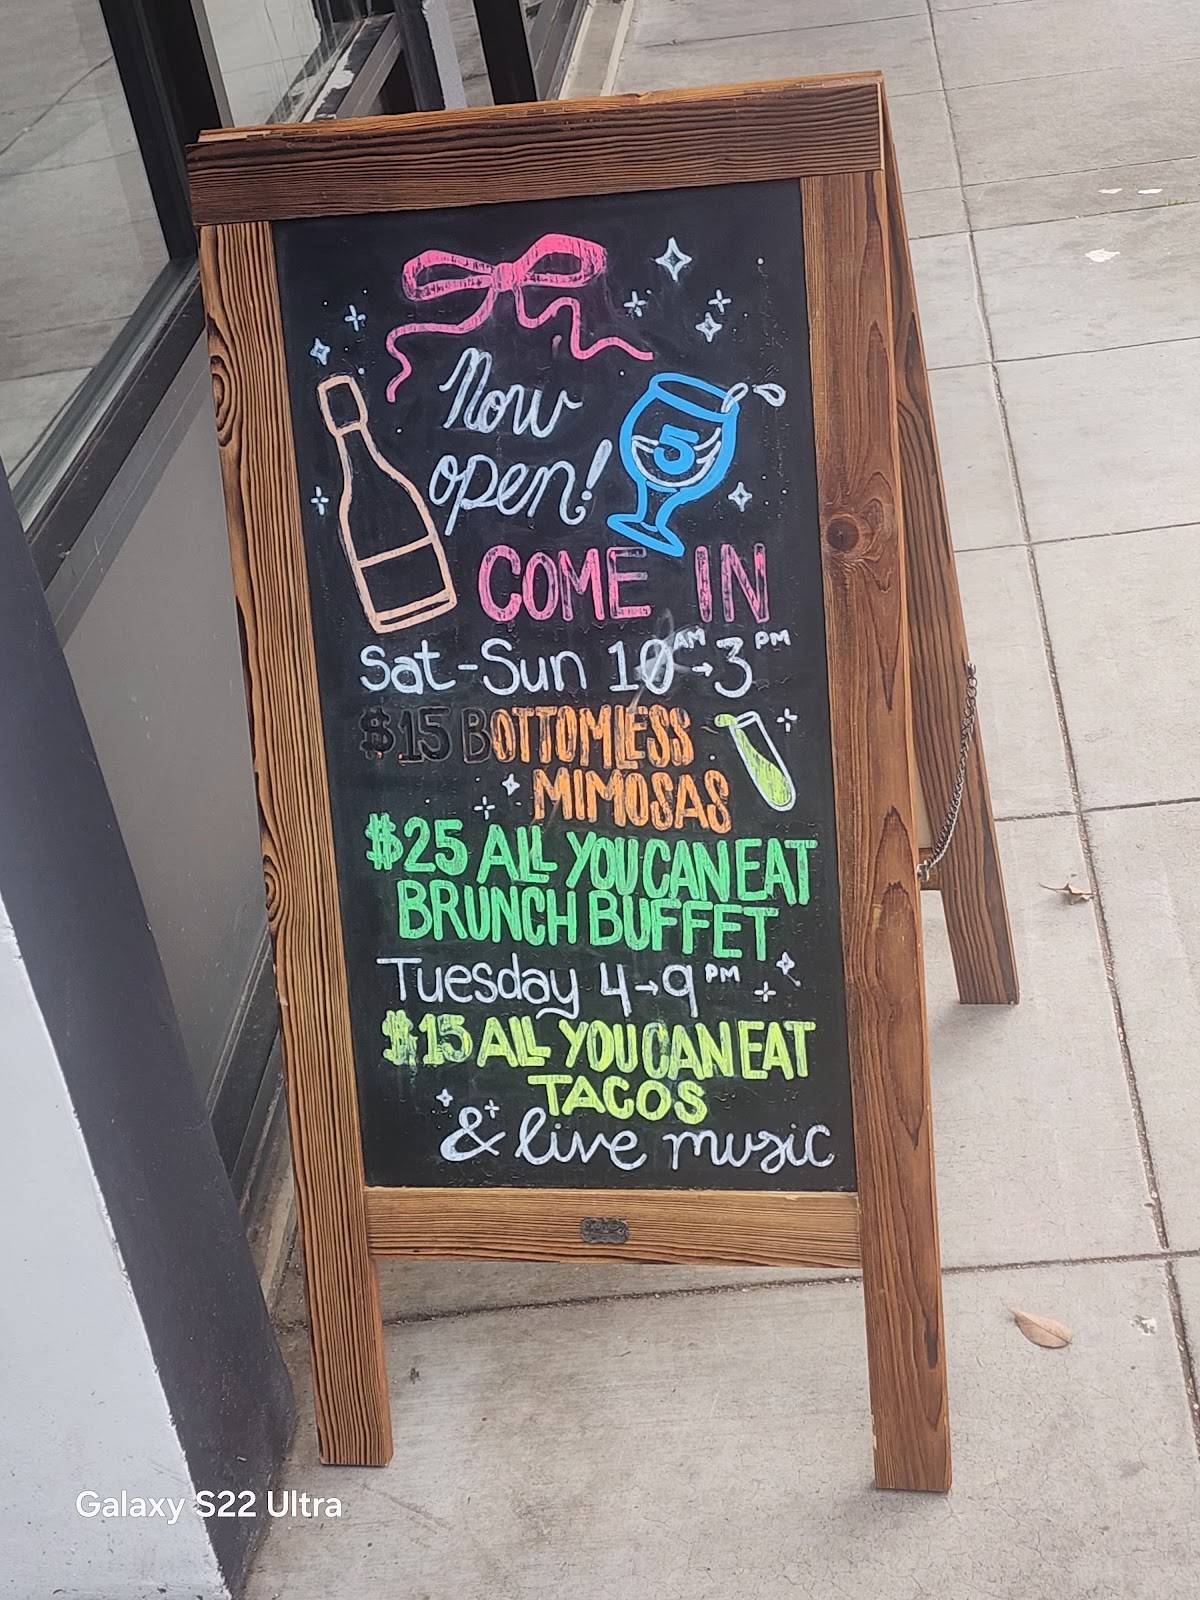 Now
open!
5
COME IN
Sat-Sun 10AM→3PM
$15 BOTTOMLESS
MIMOSAS
$25 ALL YOU CAN EAT
BRUNCH BUFFET
Tuesday 4→9PM
$15 ALL YOU CAN EAT
TACOS
& live music
Galaxy S22 Ultra